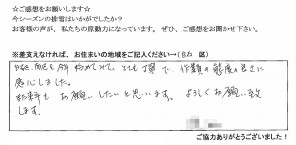 ☆ご感想をお願いします☆
今シーズンの排雪はいかがでしたか?
お客様の声が、私たちの原動力になっています。ぜひ、ご感想をお聞かせ下さい。
※差支えなければ、お住まいの地域をご記入ください→(西 区)
今年 初めてみて、とても丁寧で、作業員の態度の良さに
感心しました。
また来年も お願いしたいと思います。 よろしくお願い致
します。
ご協力ありがとうございました!